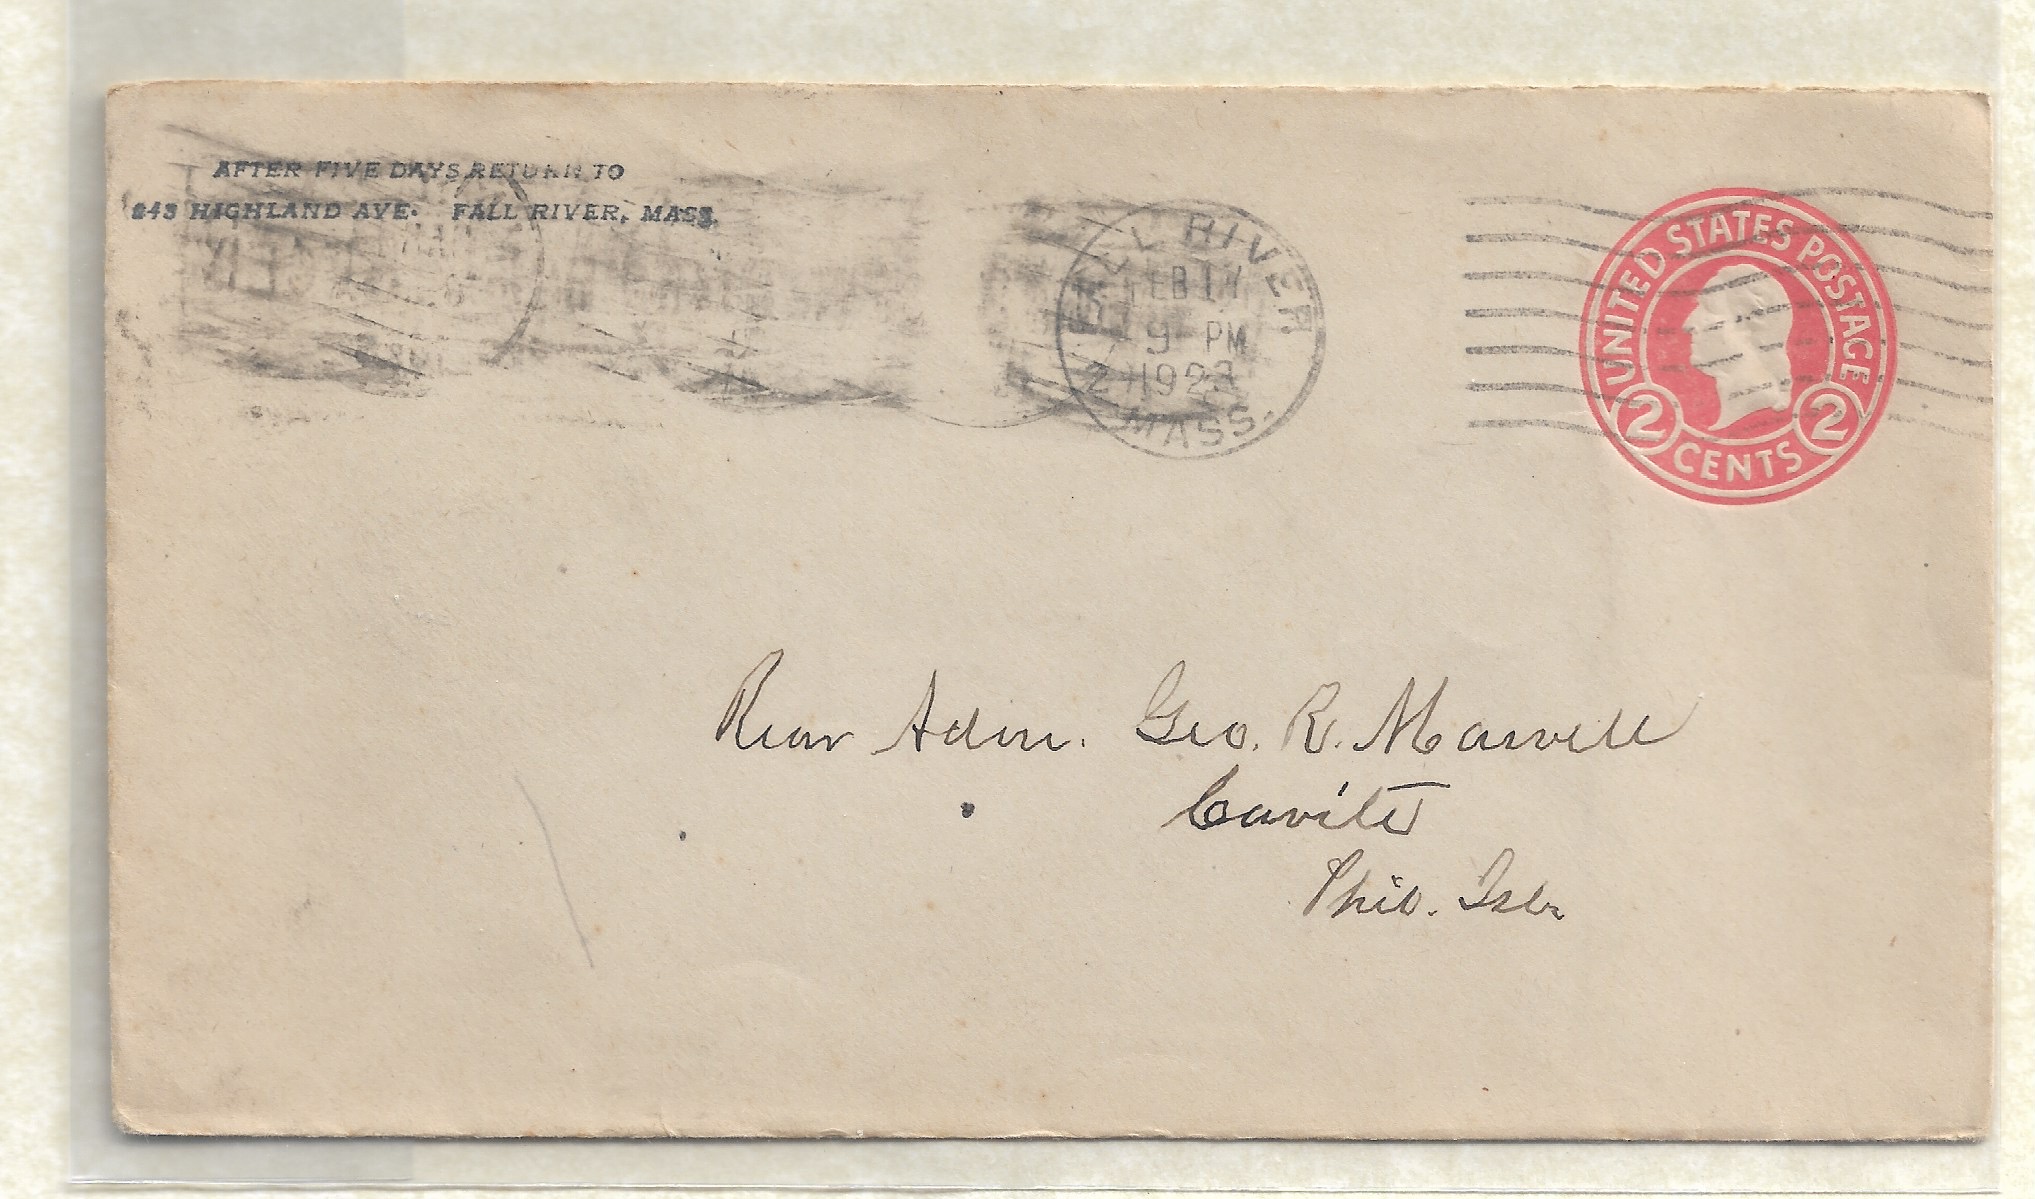 AFTER FIVE DAYS RETURN TO
HIGHLAND AVE. FALL RIVER, MASS.
FALL RIVER
FEB 17
9 PM
1923
MASS.
UNITED STATES POSTAGE
2 CENTS 2
Rear Adm. Geo. R. Marvell
Cavite
Phil. Isls.